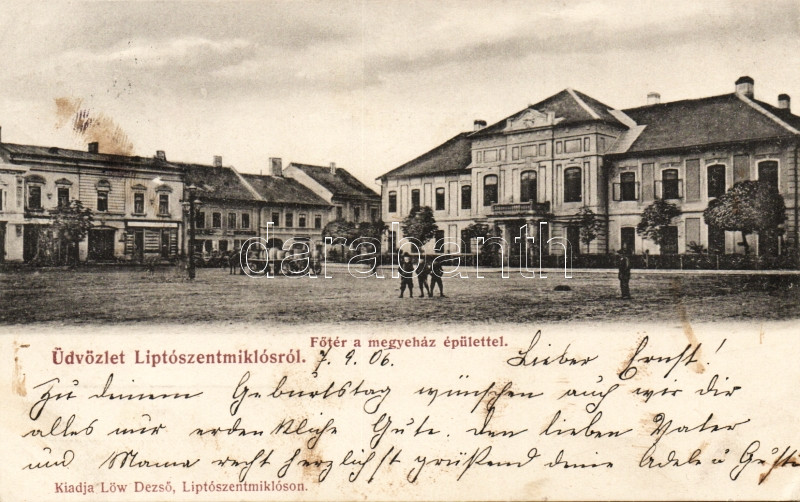 darabanth
Főtér a megyeház épülettel.
Üdvözlet Liptószentmiklósról.
7. 9. 06. Lieber Ernst!
Zu deinem Geburtstag wünschen auch wir dir
alles nur erdenkliche Gute. Den lieben Vater
und Mama recht herzlichst grüßend deine Adele u
Kiadja Löw Dezső, Liptószentmiklóson.